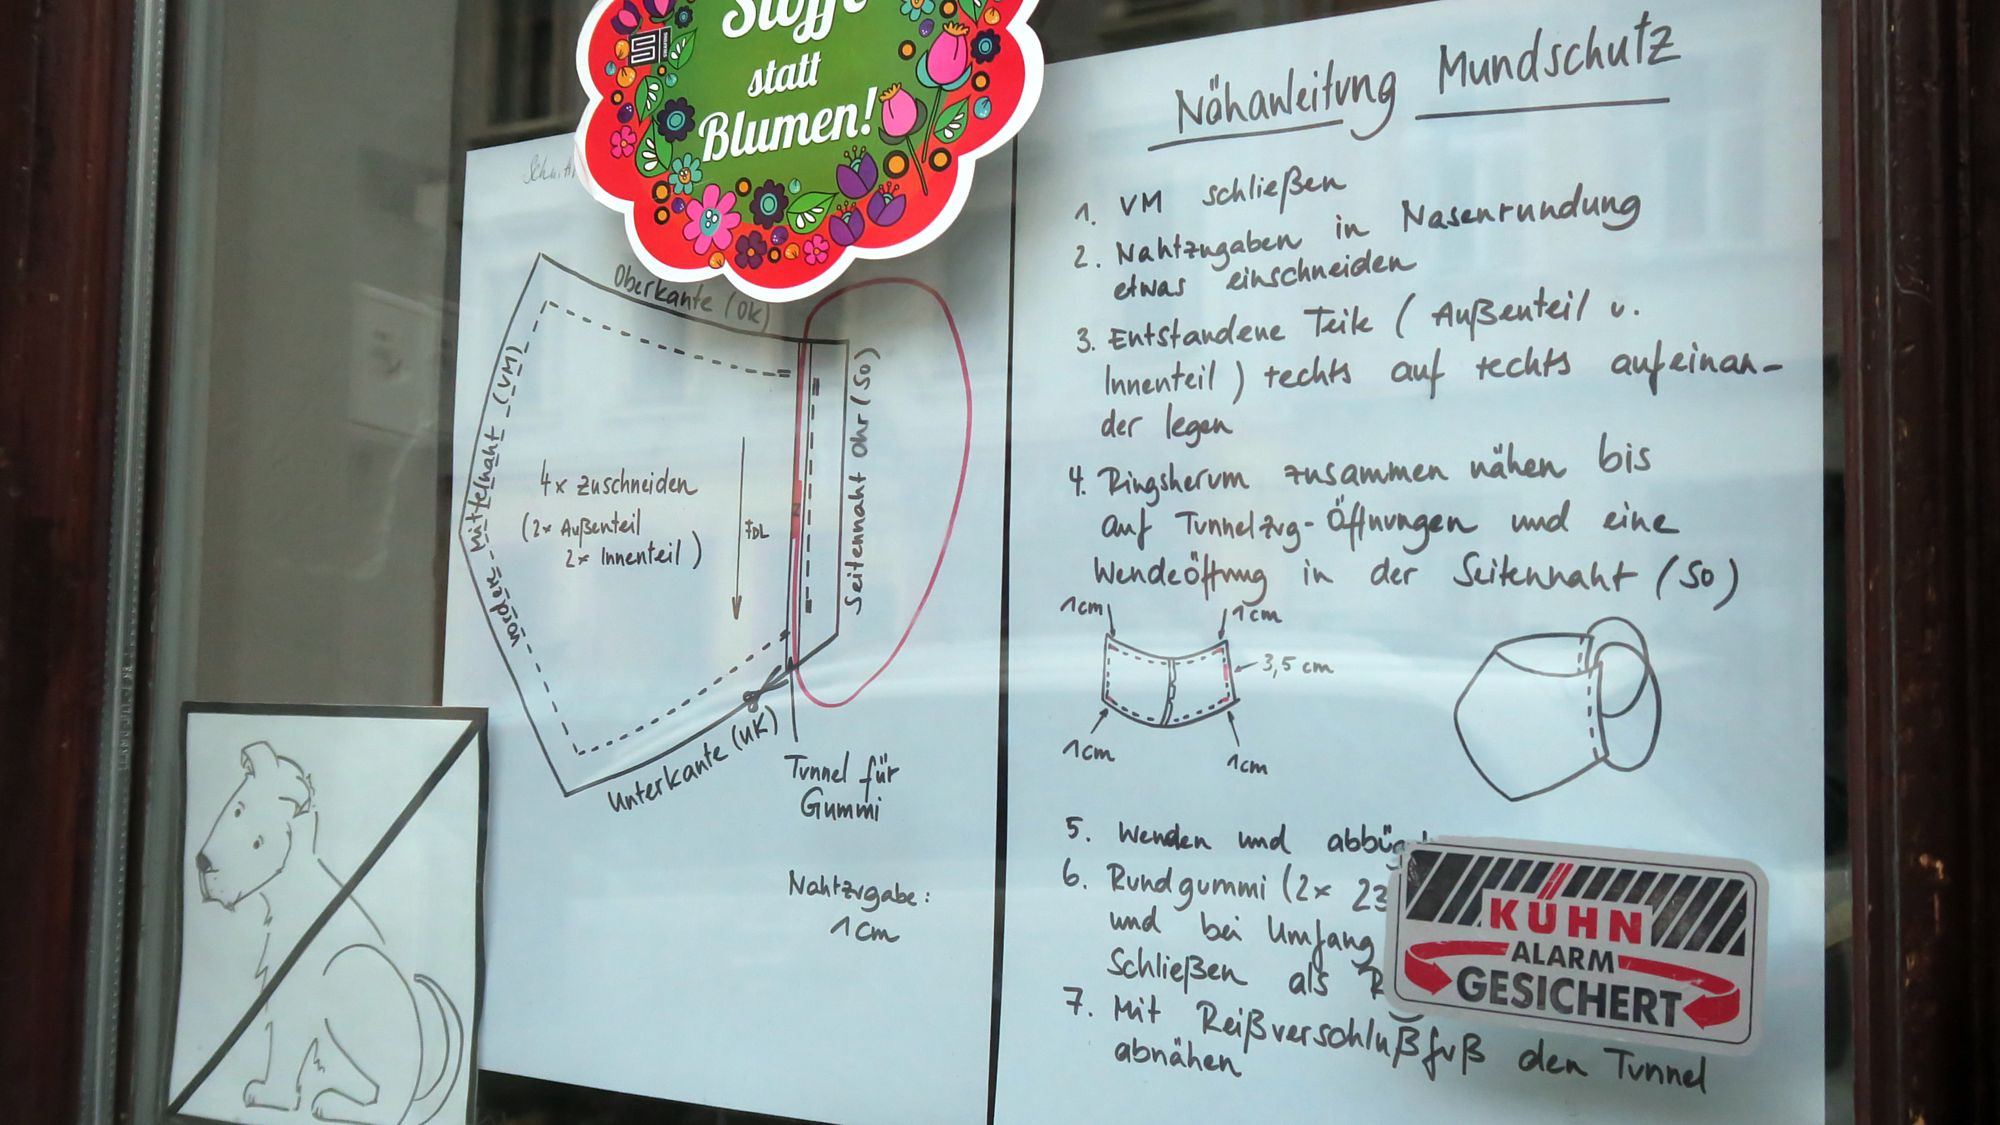 Stoffe
statt
Blumen!
Oberkante (OK)
vordere Mittelnaht (VM)
4x zuschneiden
(2x Außenteil
2x Innenteil)
FDL
Seitennaht Ohr (SO)
Unterkante (UK)
Tunnel für
Gummi
Nahtzugabe:
1cm
Nähanleitung Mundschutz
1. VM schließen
2. Nahtzugaben in Nasenrundung
etwas einschneiden
3. Entstandene Teile (Außenteil u.
Innenteil) rechts auf rechts aufeinan-
der legen
4. Ringsherum zusammen nähen bis
auf Tunnelzug-Öffnungen und eine
Wendeöffnung in der Seitennaht (SO)
1cm
1cm
3,5 cm
1cm
1cm
5. Wenden und
6. Rundgummi (2x 23
und bei Umfang
Schließen als
7. Mit Reißverschlußfuß den Tunnel
abnähen
KÜHN
ALARM
GESICHERT